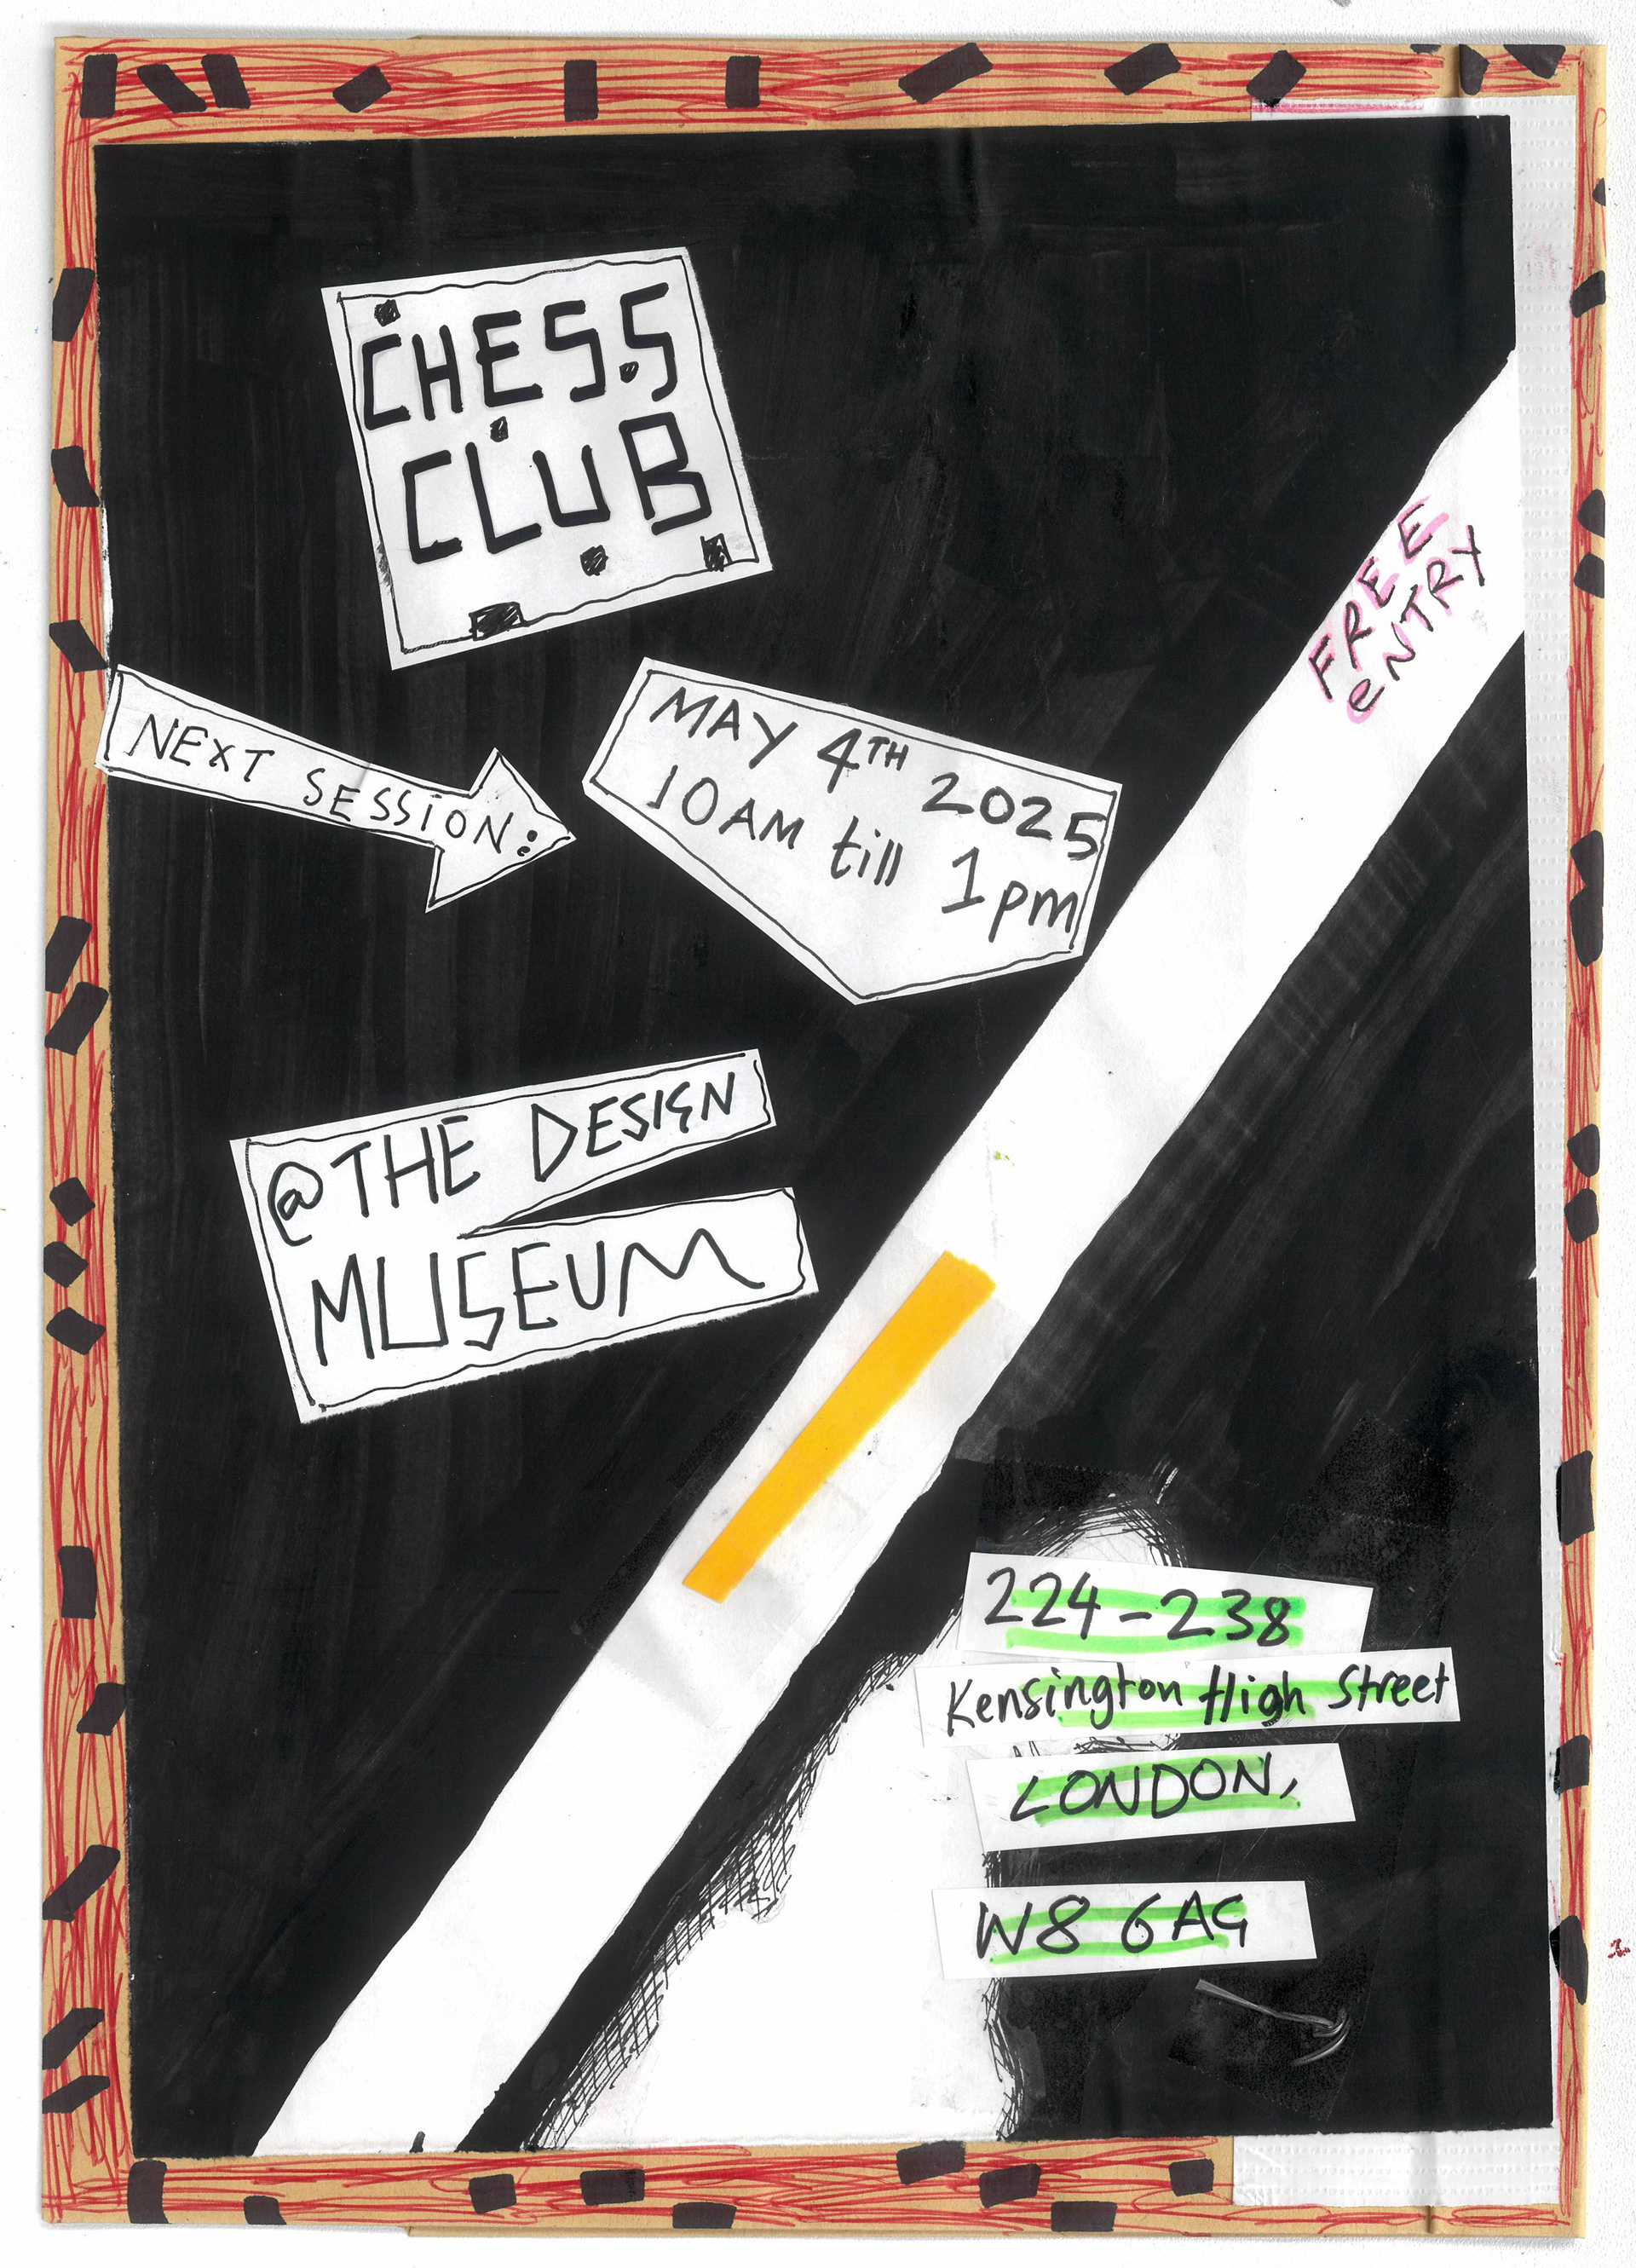 CHESS
CLUB
NEXT SESSION:
MAY 4TH 2025
10AM till 1pm
FREE
eNTRY
@THE DESIGN
MUSEUM
224-238
Kensington High Street
LONDON,
W8 6AG